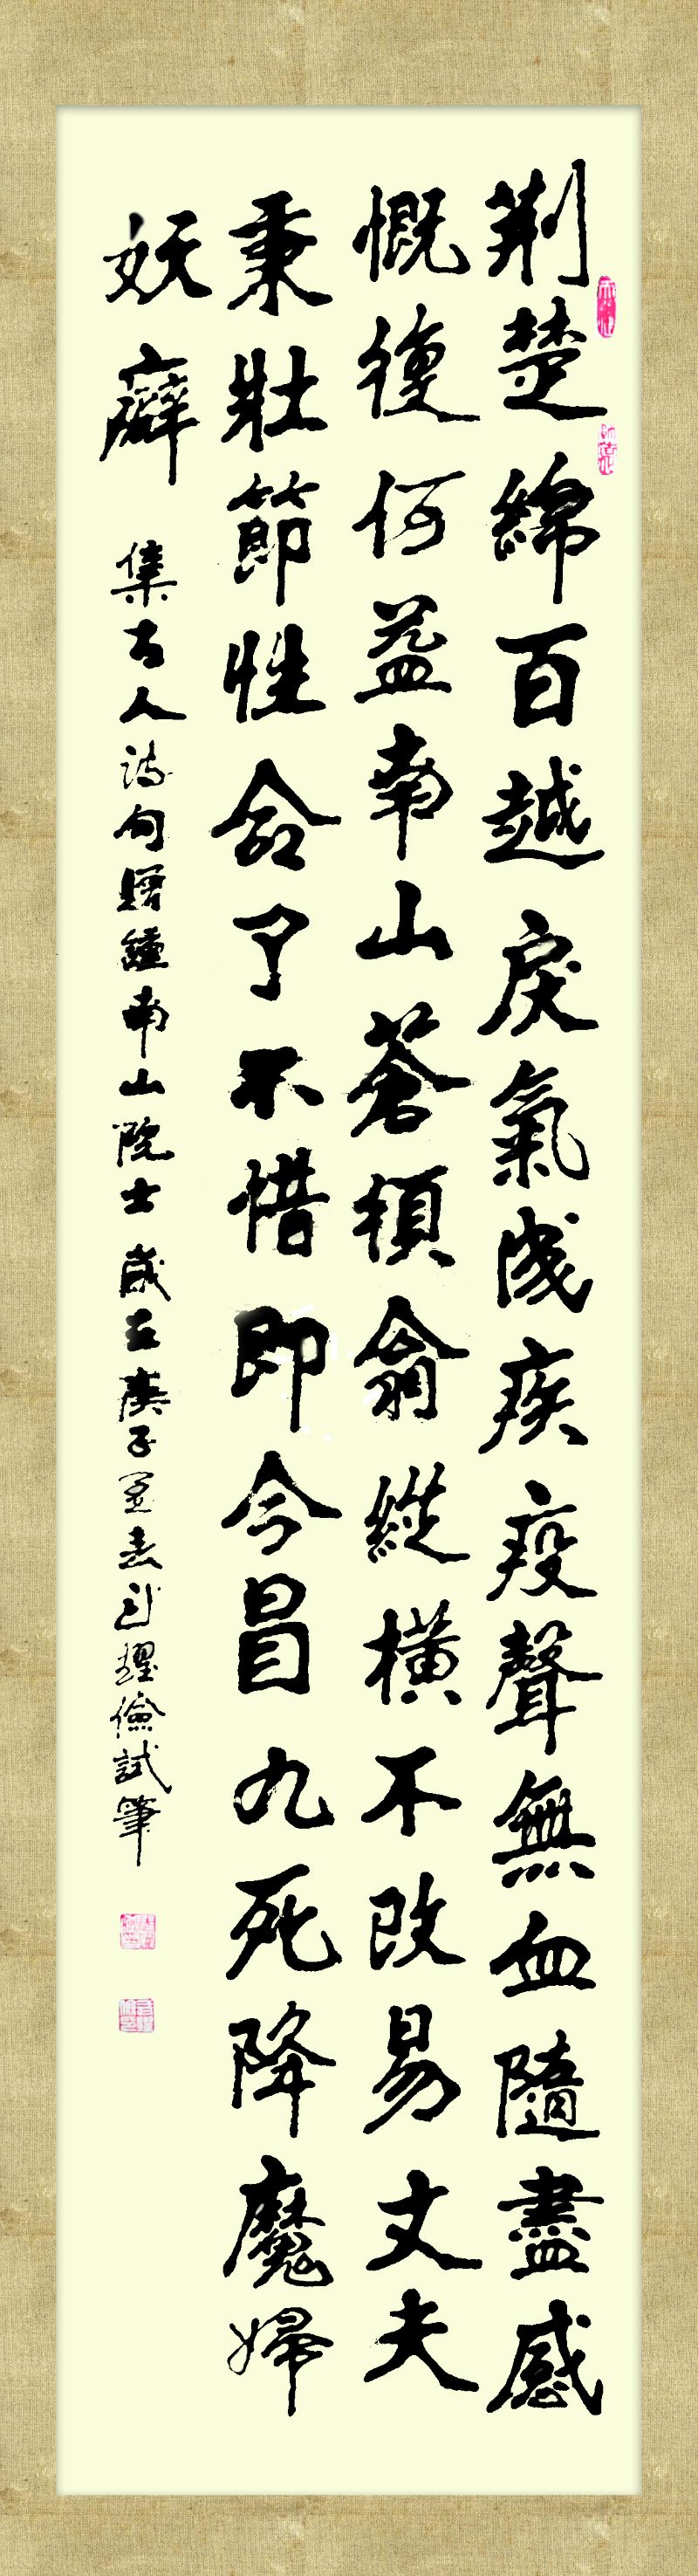 荆楚綿百越戾氣成疾疫聲無血隨盡感
慨復何益南山蒼須翁縱橫不改易丈夫
秉壯節性命了不惜即今冒九死降魔歸
妖癖
集古人詩句贈鍾南山院士 歲在庚子孟春 試筆